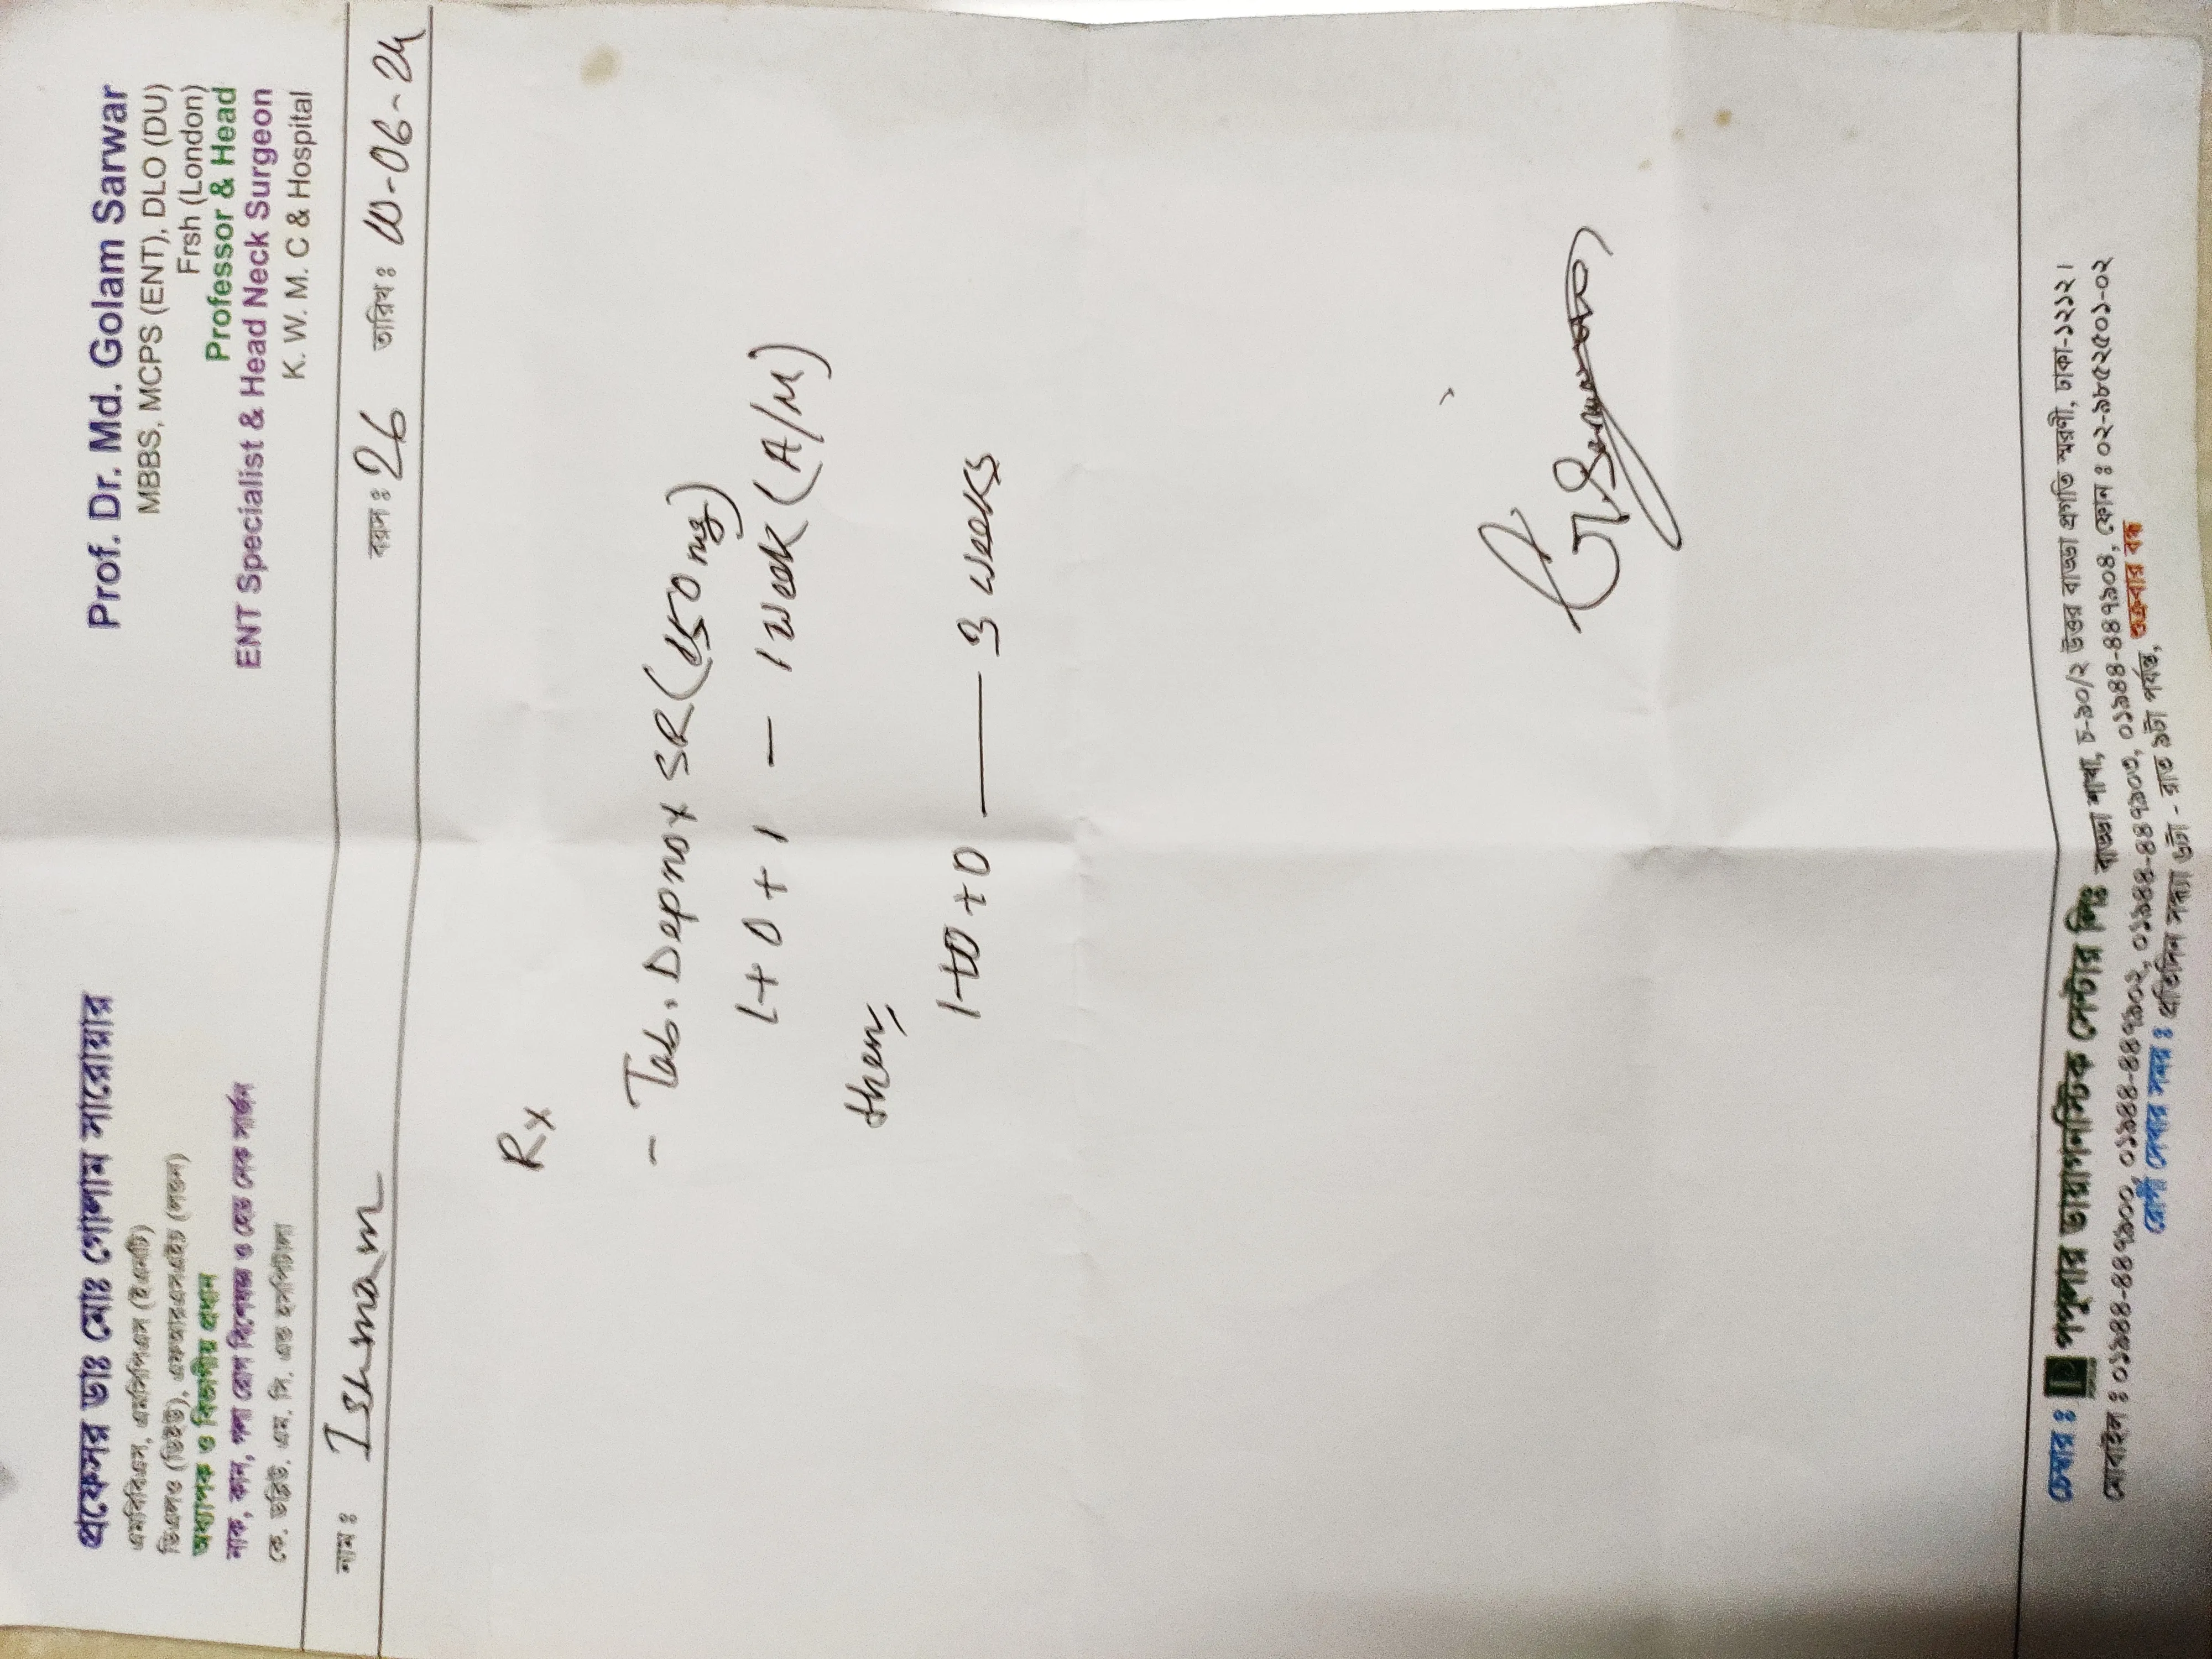 প্রফেসর ডাঃ মোঃ গোলাম সারোয়ার
এমবিবিএস, এমসিপিএস (ইএনটি)
ডিএলও (ডিইউ), এফআরএসএইচ (লন্ডন)
অধ্যাপক ও বিভাগীয় প্রধান
নাক, কান, গলা রোগ বিশেষজ্ঞ ও হেড নেক সার্জন
কে. ডব্লিউ. এম. সি. এন্ড হসপিটাল
Prof. Dr. Md. Golam Sarwar
MBBS, MCPS (ENT), DLO (DU)
Frsh (London)
Professor & Head
ENT Specialist & Head Neck Surgeon
K. W. M. C & Hospital
নাম : Ishmam বয়স : 26 তারিখ : 10-06-24
Rx
- Tab. Depnox SR (150 mg)
1 + 0 + 1 — 1 week (A/M)
then
1 + 0 + 0 — 3 weeks
চেম্বার : পপুলার ডায়াগনস্টিক সেন্টার লিঃ বাড্ডা শাখা, চ-৯০/২ উত্তর বাড্ডা প্রগতি স্মরণী, ঢাকা-১২১২।
রোগী দেখার সময় : প্রতিদিন সন্ধ্যা ৬টা - রাত ৯টা পর্যন্ত, শুক্রবার বন্ধ